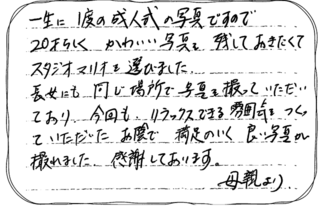 一生に1度の成人式の写真ですので
20才らしく かわいい写真を 残しておきたくて
スタジオマリオを選びました。
長女にも 同じ場所で 写真を 撮って いただい
ており 今回も、リラックスできる 雰囲気をつくっ
ていただいた お陰で 満足のいく 良い写真が
撮れました 感謝しております。
母親より